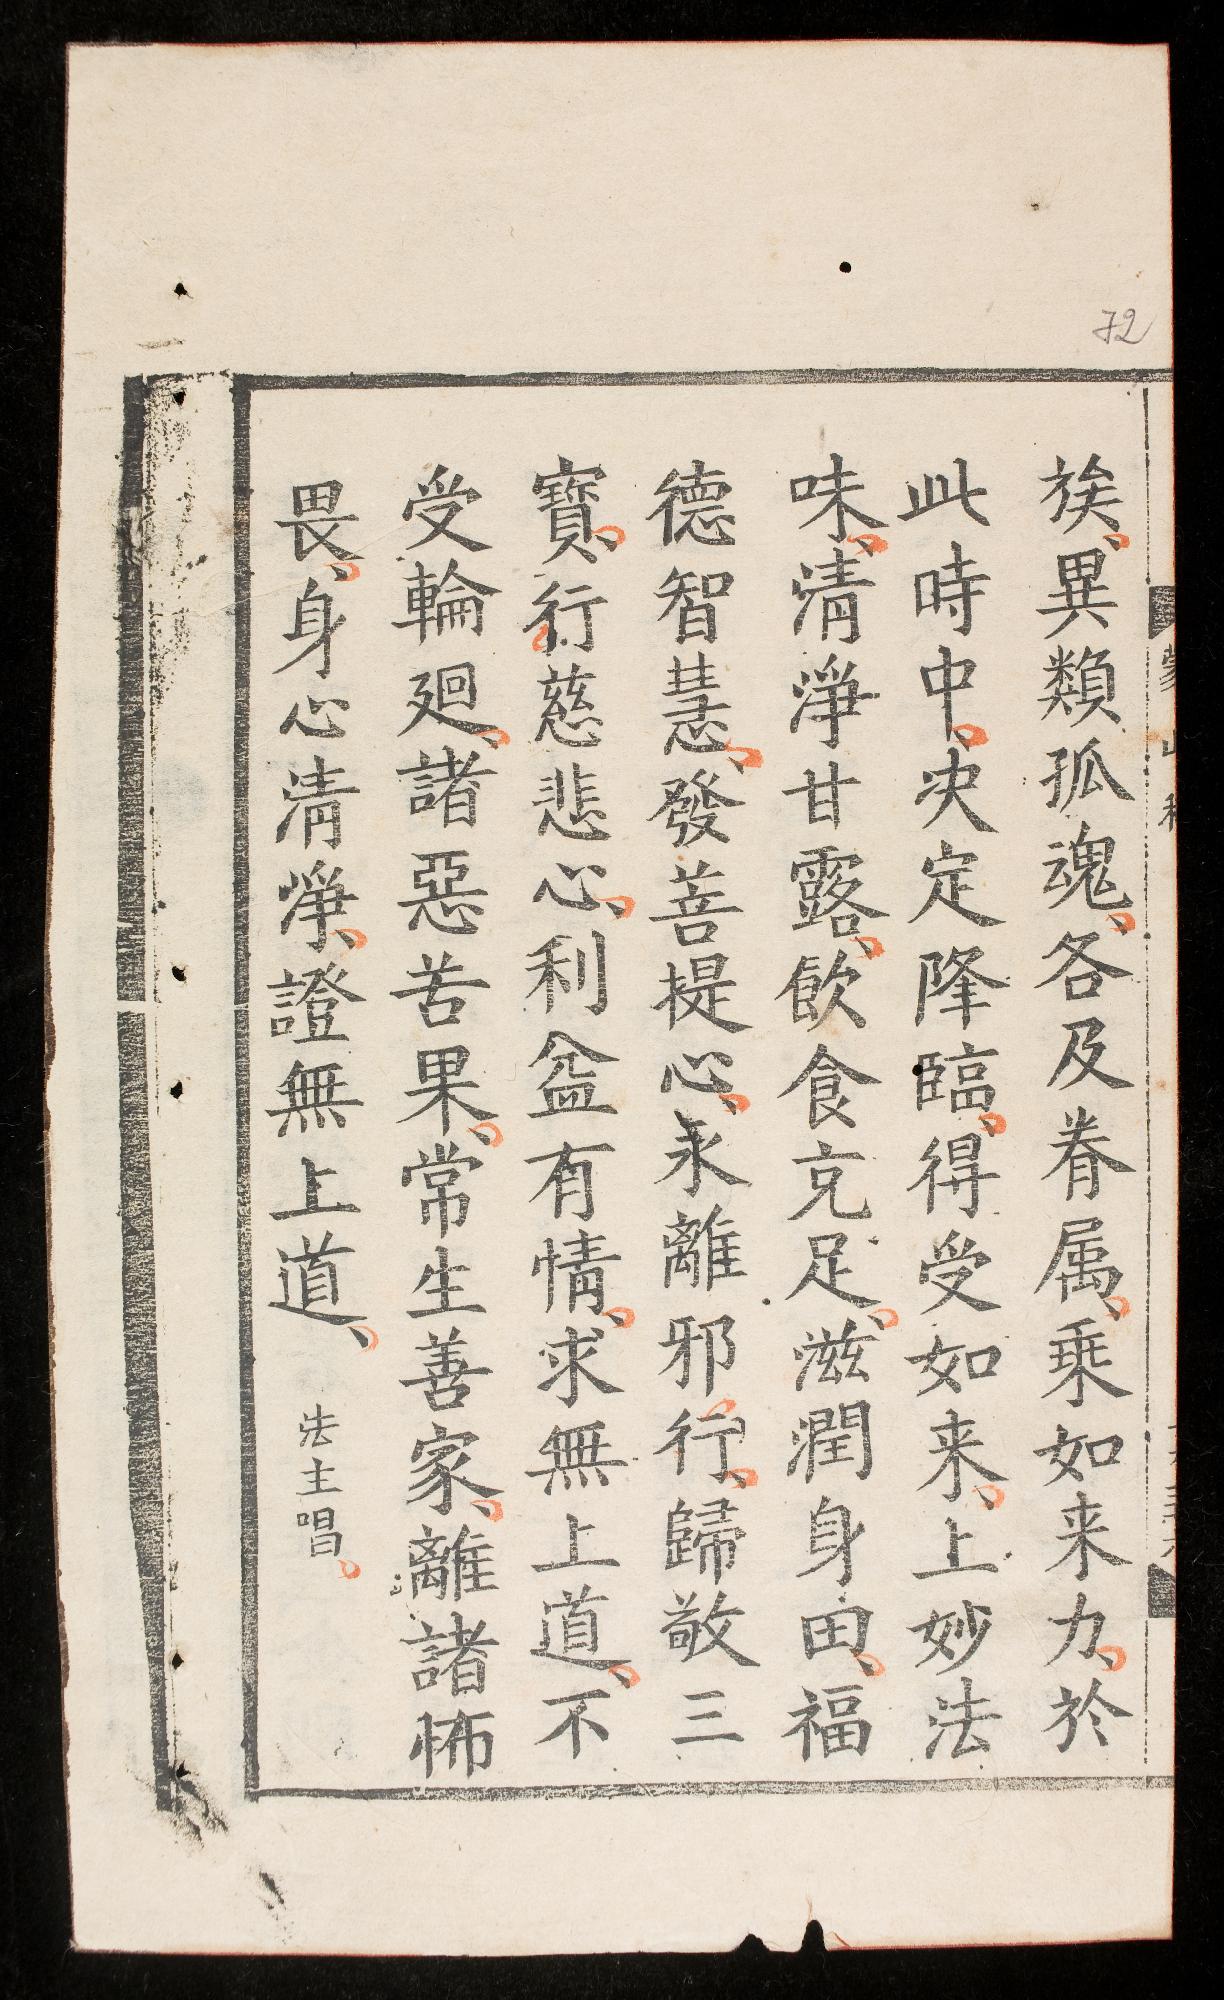 72
族異類孤魂各及眷属乘如来力於
此時中决定降臨得受如来上妙法
味清淨甘露飲食充足滋潤身田福
德智慧發菩提心永離邪行歸敬三
寶行慈悲心利益有情求無上道不
受輪廻諸惡苦果常生善家離諸怖
畏身心清淨證無上道
法主唱